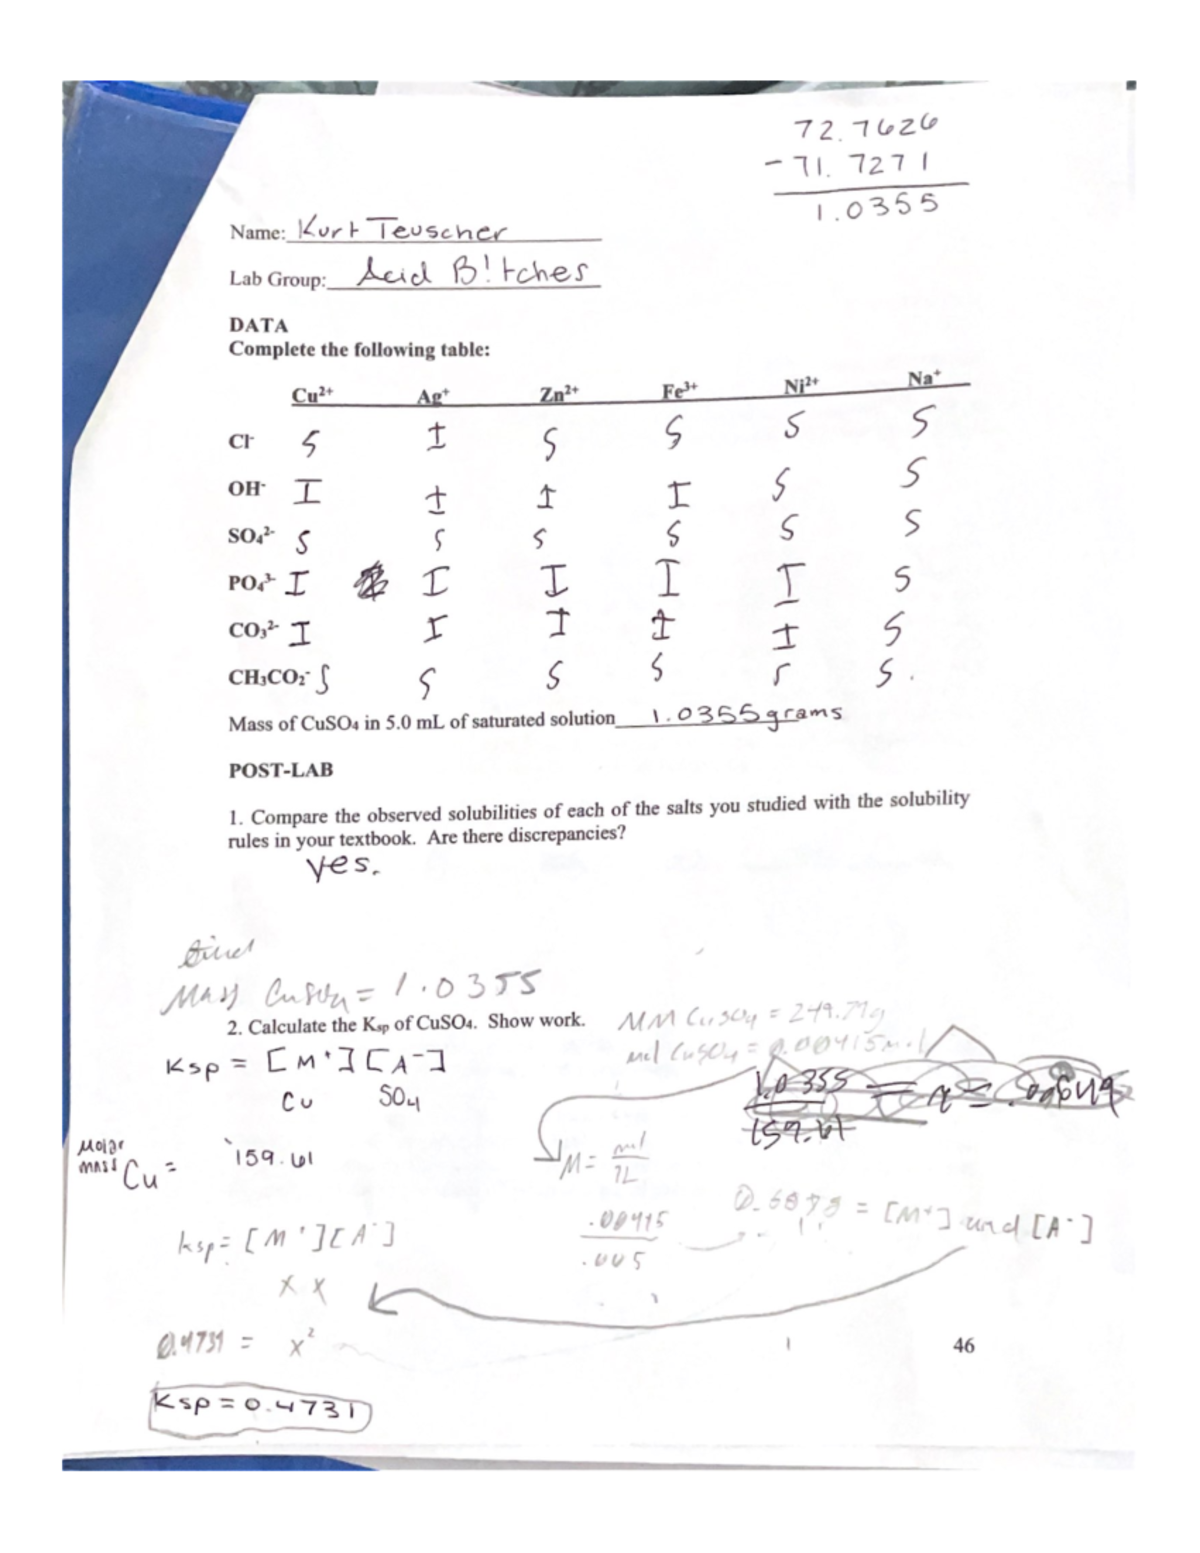 72.7626
- 71.7271
1.0355
Name: Kurt Teuscher
Lab Group: Acid B!tches
DATA
Complete the following table:
Cu²⁺ Ag⁺ Zn²⁺ Fe³⁺ Ni²⁺ Na⁺
Cl⁻ S I S S S S
OH⁻ I I I I S S
SO₄²⁻ S S S S S S
PO₄³⁻ I I I I I S
CO₃²⁻ I I I I I S
CH₃CO₂⁻ S S S S S S.
Mass of CuSO₄ in 5.0 mL of saturated solution 1.0355 grams
POST-LAB
1. Compare the observed solubilities of each of the salts you studied with the solubility
rules in your textbook. Are there discrepancies?
yes.
Mass CuSO₄ = 1.0355
2. Calculate the Kₛₚ of CuSO₄. Show work.
MM CuSO4 = 249.71g
mol CuSO4 = 0.00415 mol
Ksp = [M⁺][A⁻]
Cu SO4
1.0355
159.61
Molar
mass Cu = 159.61
M = mol
1L
.00415
.005
= [M⁺] and [A⁻]
ksp = [M⁺][A⁻]
x x
0.4731 = x²
46
Ksp = 0.4731